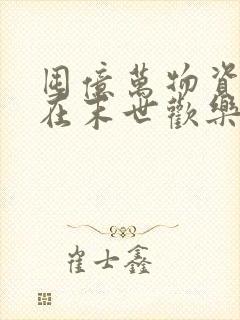 囤億萬物資
在末世歡樂
崔士鑫